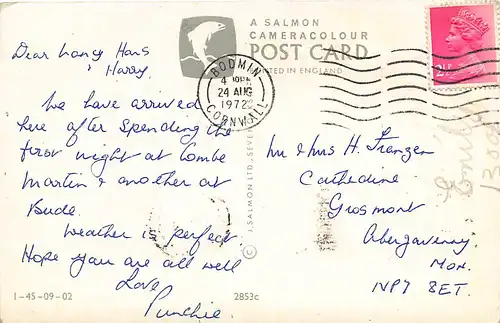 A SALMON
CAMERACOLOUR
POST CARD
PRINTED IN ENGLAND
BODMIN
24 AUG
1972
CORNWALL
2½
Dear Lancy Hans
& Harry.
We have arrived
here after spending the
first night at Combe
Martin & another at
Bude.
Weather is perfect.
Hope you are all well
Love
Punchie.
© J. SALMON LTD., SEVEN
Mr & Mrs H. Franzen
Cathedine
Grosmont
Abergavenny
Mon.
NP7 8ET.
1-45-09-02
2853c